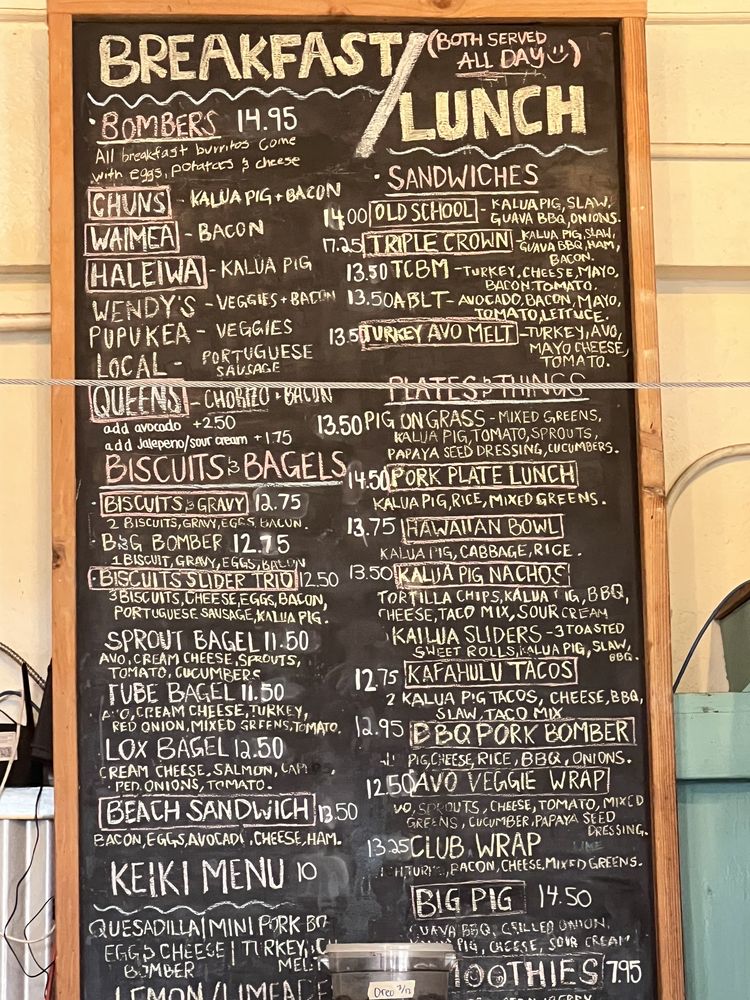 BREAKFAST/
(BOTH SERVED
ALL DAY)
LUNCH
• BOMBERS 14.95
All breakfast burritos come
with eggs, potatoes & cheese
CHUNS - KALUA PIG + BACON
WAIMEA - BACON
HALEIWA - KALUA PIG
WENDY'S - VEGGIES + BACON
PUPUKEA - VEGGIES
LOCAL - PORTUGUESE
SAUSAGE
QUEENS - CHORIZO + BACON
add avocado +2.50
add Jalepeno/sour cream +1.75
BISCUITS & BAGELS
• BISCUITS & GRAVY 12.75
2 BISCUITS, GRAVY, EGGS, BACON.
B&G BOMBER 12.75
1 BISCUIT, GRAVY, EGGS, BACON
• BISCUITS SLIDER TRIO 12.50
3 BISCUITS, CHEESE, EGGS, BACON,
PORTUGUESE SAUSAGE, KALUA PIG.
SPROUT BAGEL 11.50
AVO, CREAM CHEESE, SPROUTS,
TOMATO, CUCUMBERS
TUBE BAGEL 11.50
CREAM CHEESE, TURKEY,
RED ONION, MIXED GREENS, TOMATO.
LOX BAGEL 12.50
CREAM CHEESE, SALMON,
RED ONIONS, TOMATO.
BEACH SANDWICH 13.50
BACON, EGGS, AVOCADO, CHEESE, HAM.
KEIKI MENU 10
QUESADILLA | MINI PORK
EGG & CHEESE | TURKEY,
BOMBER MELT
LEMON/LIMEADE
• SANDWICHES
14.00 OLD SCHOOL - KALUA PIG, SLAW,
GUAVA BBQ, ONIONS.
17.25 TRIPLE CROWN - KALUA PIG, SLAW,
GUAVA BBQ, HAM,
BACON.
13.50 TCBM - TURKEY, CHEESE, MAYO,
BACON, TOMATO.
13.50 ABLT - AVOCADO, BACON, MAYO,
TOMATO, LETTUCE.
13.50 TURKEY AVO MELT - TURKEY, AVO,
MAYO CHEESE,
TOMATO.
PLATES & THINGS
13.50 PIG ON GRASS - MIXED GREENS,
KALUA PIG, TOMATO, SPROUTS,
PAPAYA SEED DRESSING, CUCUMBERS.
14.50 PORK PLATE LUNCH
KALUA PIG, RICE, MIXED GREENS.
13.75 HAWAIIAN BOWL
KALUA PIG, CABBAGE, RICE.
13.50 KALUA PIG NACHOS
TORTILLA CHIPS, KALUA PIG, BBQ,
CHEESE, TACO MIX, SOUR CREAM
KAILUA SLIDERS - 3 TOASTED
SWEET ROLLS, KALUA PIG, SLAW,
BBQ.
12.75 KAPAHULU TACOS
2 KALUA PIG TACOS, CHEESE, BBQ,
SLAW, TACO MIX
12.95 BBQ PORK BOMBER
PIG, CHEESE, RICE, BBQ, ONIONS.
12.50 AVO VEGGIE WRAP
VO, SPROUTS, CHEESE, TOMATO, MIXED
GREENS, CUCUMBER, PAPAYA SEED
DRESSING.
13.25 CLUB WRAP
BACON, CHEESE, MIXED GREENS.
BIG PIG 14.50
GUAVA BBQ, GRILLED ONION,
PIG, CHEESE, SOUR CREAM
MOOTHIES 7.95
Oreo 3/12